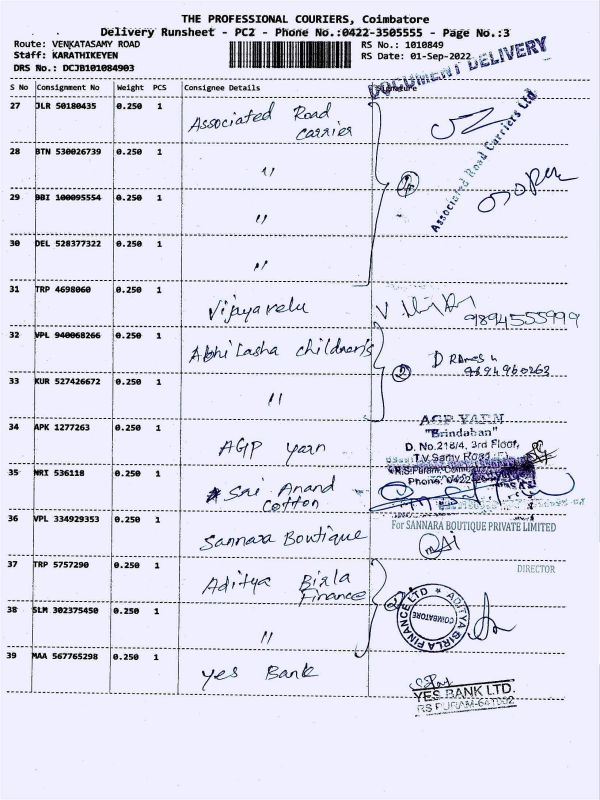 THE PROFESSIONAL COURIERS, Coimbatore
Delivery Runsheet - PC2 - Phone No.:0422-3505555 - Page No.:3
Route: VENKATASAMY ROAD
Staff: KARATHIKEYEN
DRS No.: DCJB101084903
RS No.: 1010849
RS Date: 01-Sep-2022
DOCUMENT DELIVERY
S No Consignment No Weight PCS Consignee Details Signature
27 JLR 50180435 0.250 1 Associated Road
Carrier
Associated Road Carriers Ltd
28 BTN 530026739 0.250 1 "
29 BBI 100095554 0.250 1 "
30 DEL 528377322 0.250 1 "
31 TRP 4698060 0.250 1 Vijayavelu
9894555999
32 VPL 940068266 0.250 1 Abhilasha children's
D Ramesh
33 KUR 527426672 0.250 1 "
34 APK 1277263 0.250 1 AGP yarn
AGP YARN
"Brindaban"
D. No.218/4, 3rd Floor,
T.V. Samy Road
R.S. Puram,
Phone: 0422
35 NRI 536118 0.250 1 Sri Anand
Cotton
36 VPL 334929353 0.250 1 Sannara Boutique
For SANNARA BOUTIQUE PRIVATE LIMITED
DIRECTOR
37 TRP 5757290 0.250 1 Aditya Birla
Finance
ADITYA BIRLA FINANCE LTD
COIMBATORE
38 SLM 302375450 0.250 1 "
39 MAA 567765298 0.250 1 yes Bank
YES BANK LTD.
RS PURAM-641002